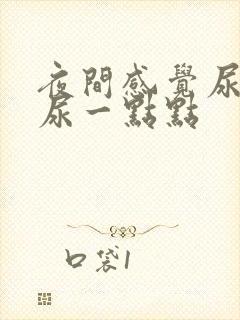 夜間感覺尿
尿一點點
口袋1